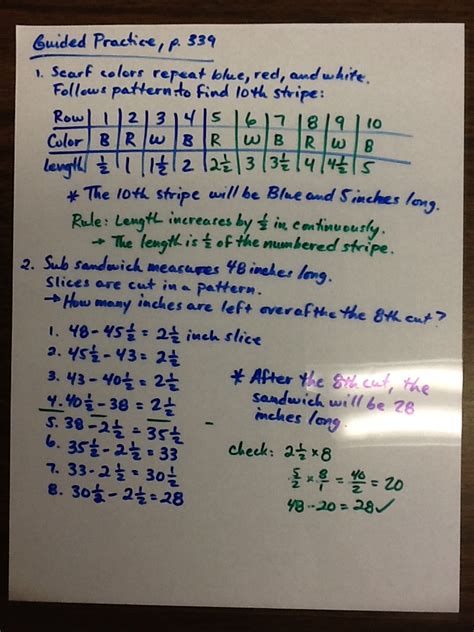 Guided Practice, p. 339
1. Scarf colors repeat blue, red, and white.
Follows pattern to find 10th stripe:
Row | 1 | 2 | 3 | 4 | 5 | 6 | 7 | 8 | 9 | 10
Color | B | R | W | B | R | W | B | R | W | B
length | 1/2 | 1 | 1 1/2 | 2 | 2 1/2 | 3 | 3 1/2 | 4 | 4 1/2 | 5
* The 10th stripe will be Blue and 5 inches long.
Rule: Length increases by 1/2 in. continuously.
→ The length is 1/2 of the numbered stripe.
2. Sub sandwich measures 48 inches long.
Slices are cut in a pattern.
→ How many inches are left over after the the 8th cut?
1. 48 - 45 1/2 = 2 1/2 inch slice
2. 45 1/2 - 43 = 2 1/2
3. 43 - 40 1/2 = 2 1/2
4. 40 1/2 - 38 = 2 1/2
5. 38 - 2 1/2 = 35 1/2
6. 35 1/2 - 2 1/2 = 33
7. 33 - 2 1/2 = 30 1/2
8. 30 1/2 - 2 1/2 = 28
* After the 8th cut, the
sandwich will be 28
inches long.
check: 2 1/2 × 8
5/2 × 8/1 = 40/2 = 20
48 - 20 = 28 ✓